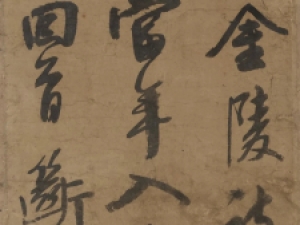 金陵
當年入
回首斷